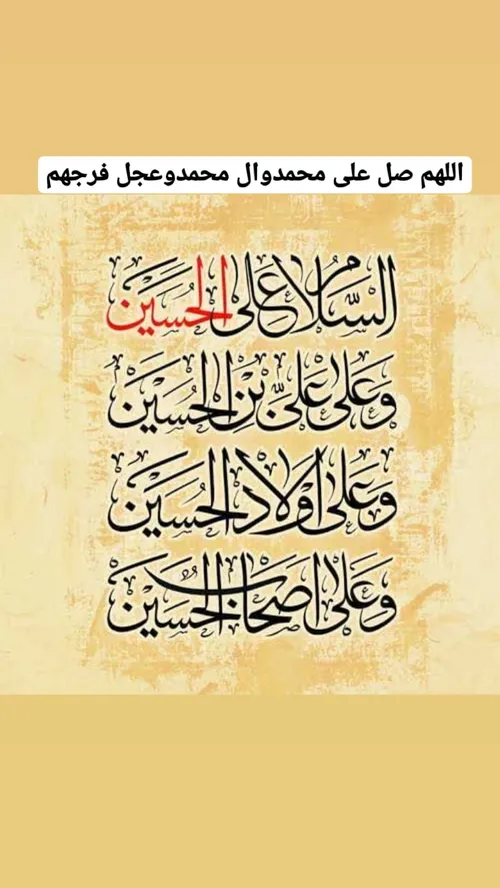 اللهم صل على محمدوال محمدوعجل فرجهم
السَّلامُ عَلَى الحُسَين
وَعَلى عَليِّ بْنِ الحُسَيْن
وَعَلى اَوْلادِ الحُسَيْن
وَعَلى اَصْحابِ الحُسَين